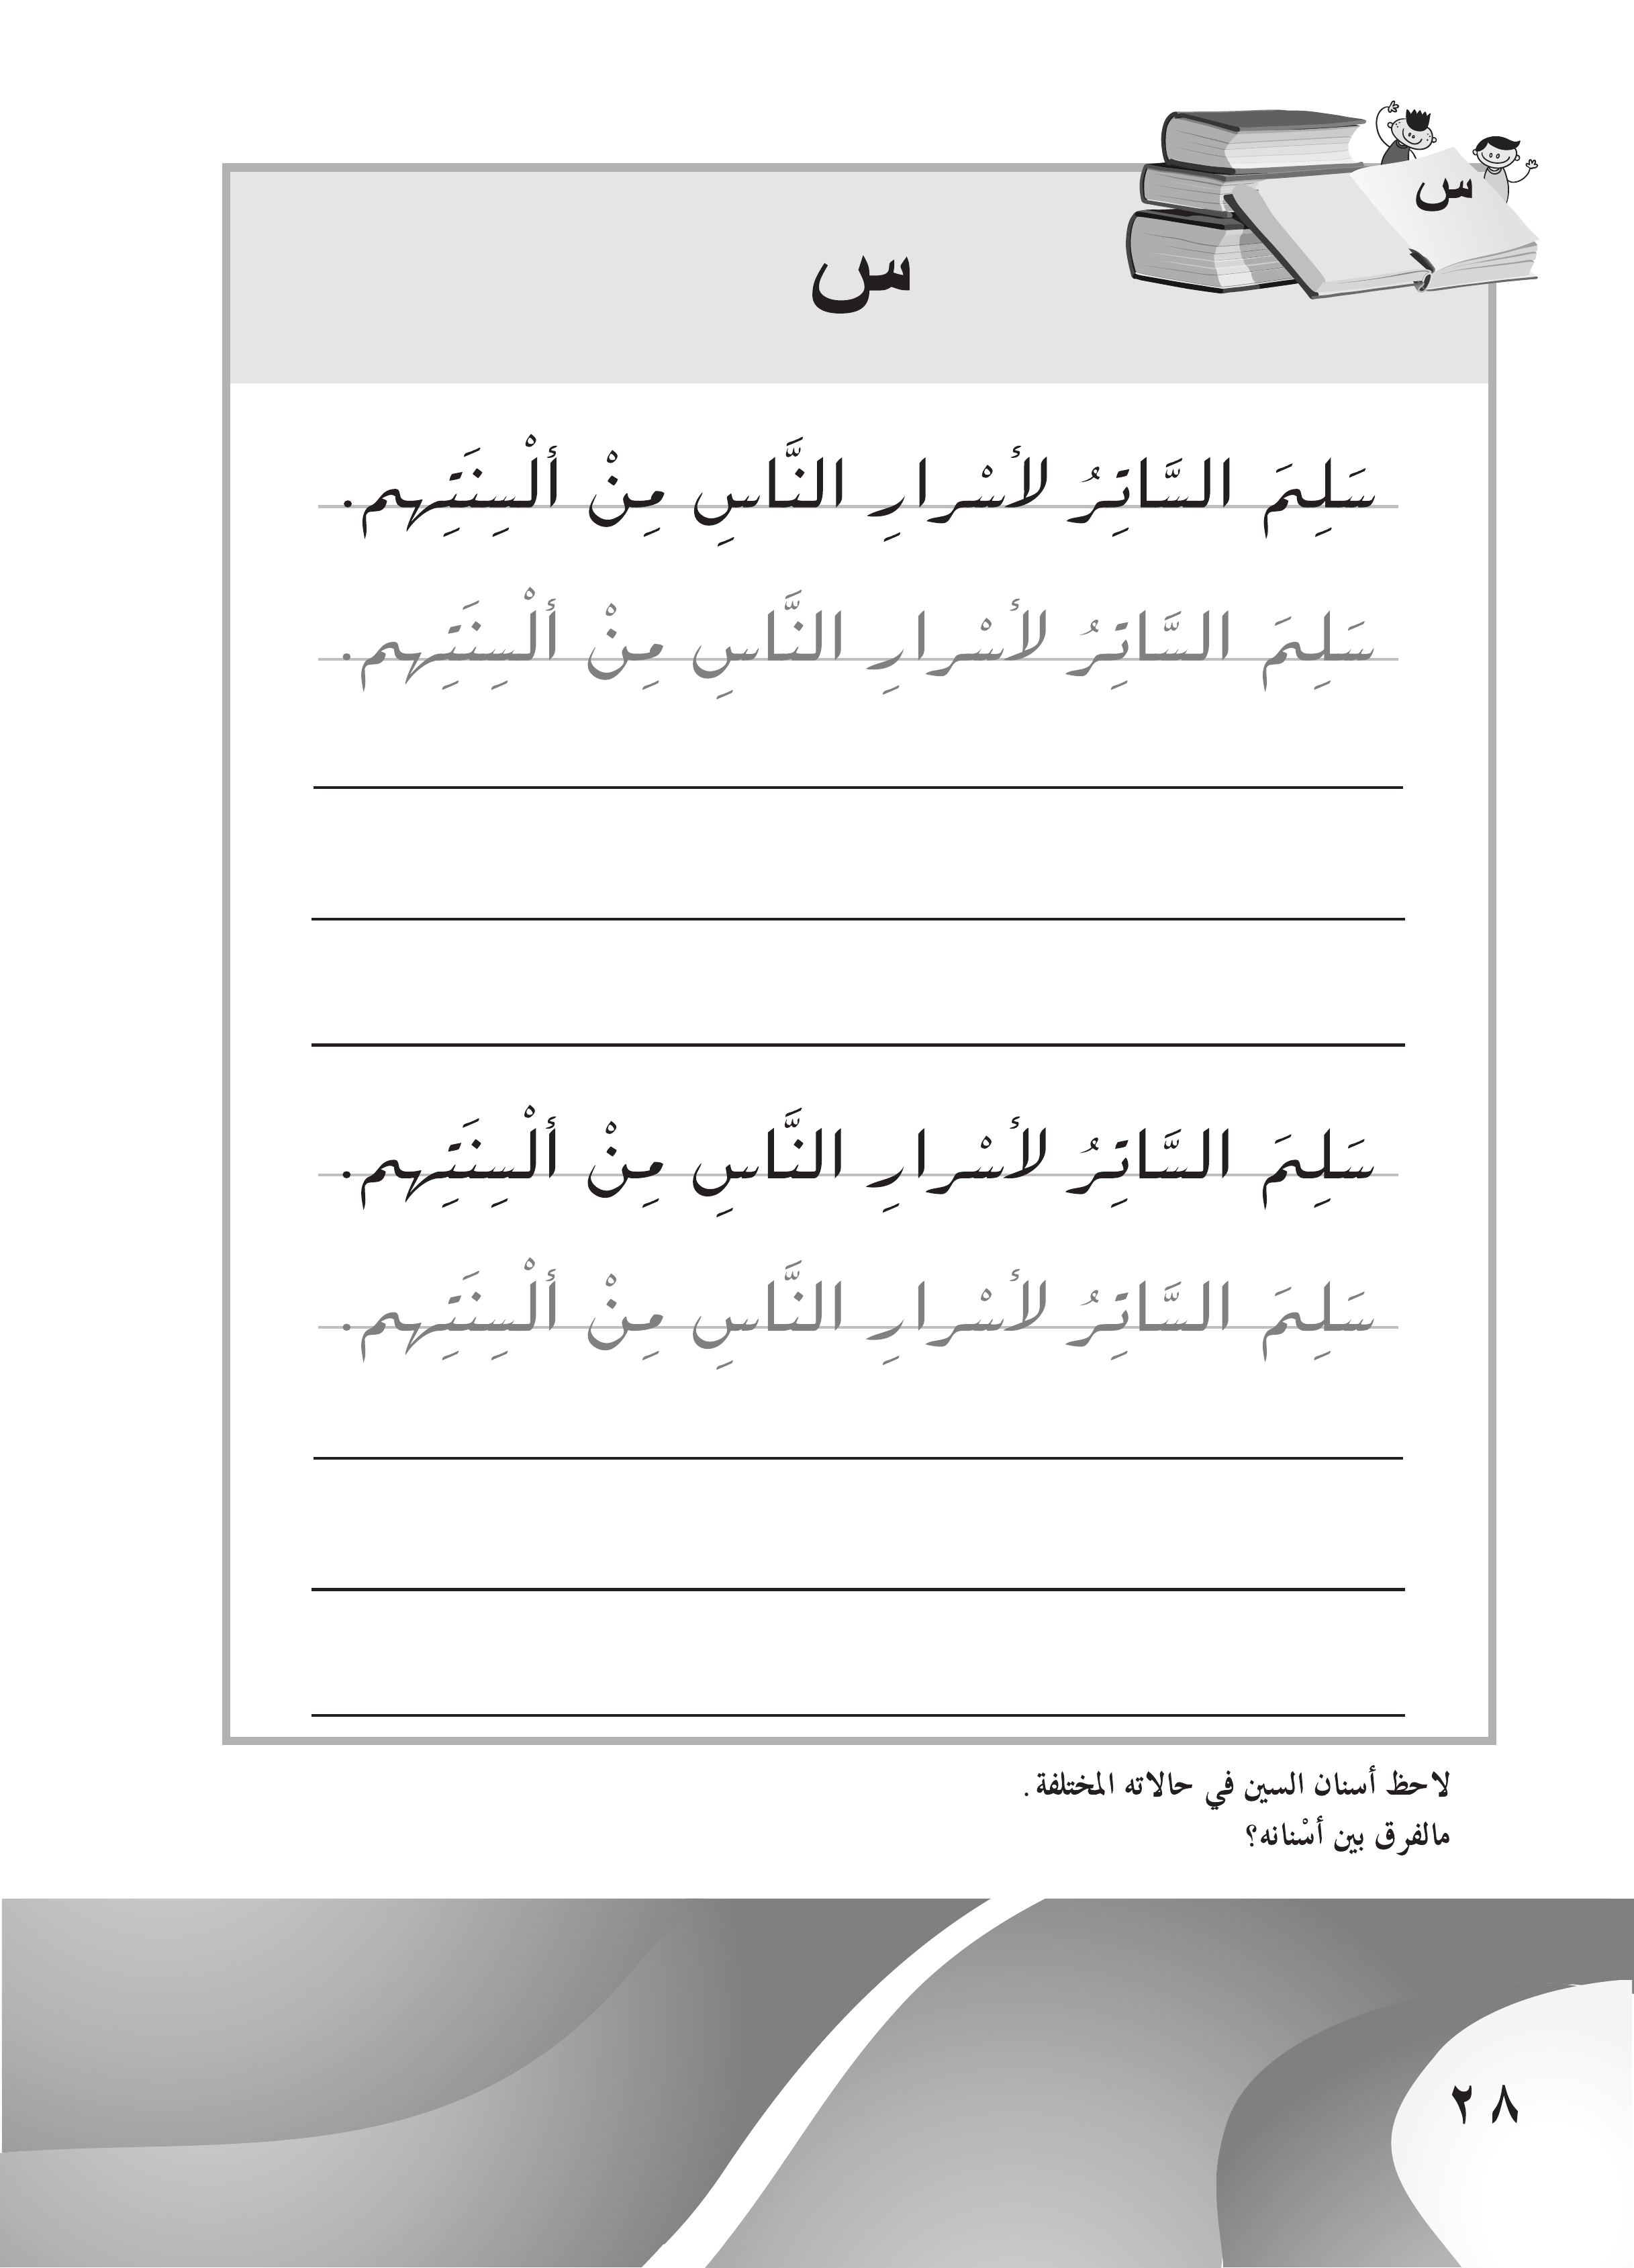 س
س
سَلِمَ السَّاتِرُ لأسْرارِ النَّاسِ مِنْ ألْسِنَتِهم.
سَلِمَ السَّاتِرُ لأسْرارِ النَّاسِ مِنْ ألْسِنَتِهم.
سَلِمَ السَّاتِرُ لأسْرارِ النَّاسِ مِنْ ألْسِنَتِهم.
سَلِمَ السَّاتِرُ لأسْرارِ النَّاسِ مِنْ ألْسِنَتِهم.
لاحظ أسنان السين في حالاته المختلفة.
مالفرق بين أسْنانه؟
٢٨